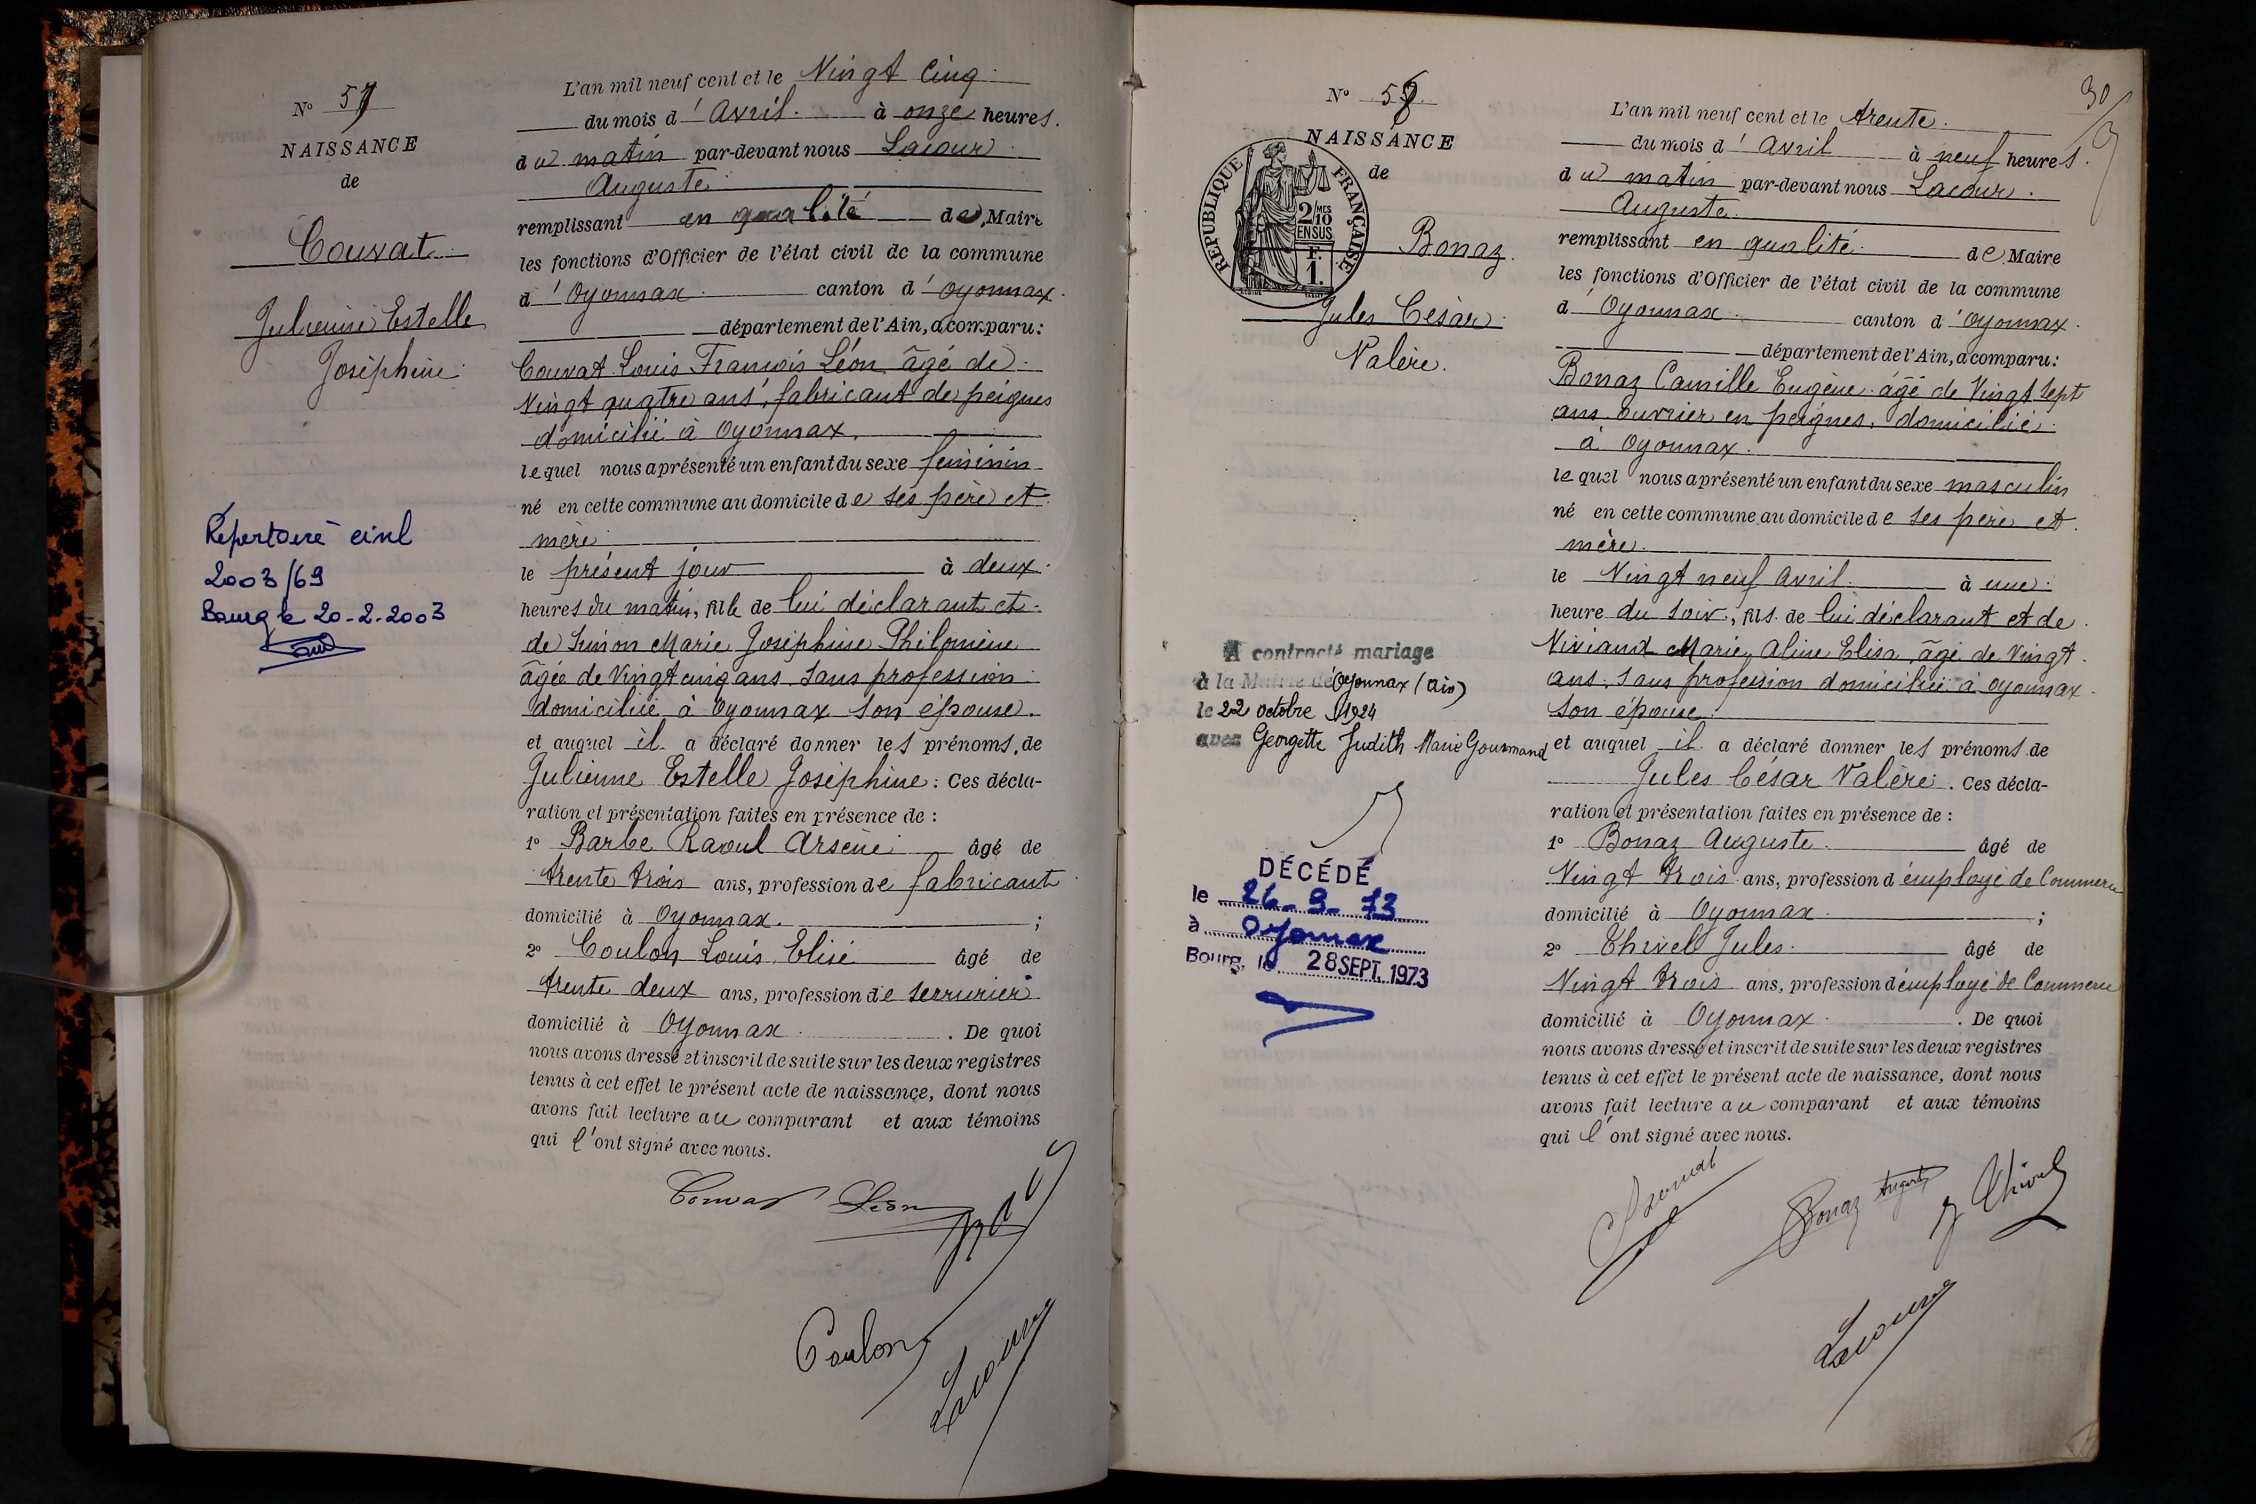 N° 57
NAISSANCE
de
Couvat
Julienne Estelle
Joséphine
Répertoire civil
2003/69
Bourg le 20-2-2003
L'an mil neuf cent et le Vingt cinq
du mois d'Avril à onze heures.
du matin par-devant nous Lacour
Auguste
remplissant en qualité de Maire
les fonctions d'Officier de l'état civil de la commune
d'Oyonnax canton d'Oyonnax.
département de l'Ain, a comparu:
Couvat Louis François Léon âgé de
Vingt quatre ans, fabricant de peignes
domicilié à Oyonnax.
lequel nous a présenté un enfant du sexe féminin
né en cette commune au domicile de ses père et
mère
le présent jour à deux
heures du matin, fille de lui déclarant et
de Marie Joséphine Philomène
âgée de Vingt cinq ans sans profession
domiciliée à Oyonnax son épouse.
et auquel il a déclaré donner les prénoms de
Julienne Estelle Joséphine. Ces décla-
ration et présentation faites en présence de :
1° Barbe Raoul Arsène âgé de
trente trois ans, profession de fabricant
domicilié à Oyonnax. ;
2° Coulon Louis Elisé âgé de
trente deux ans, profession de serrurier
domicilié à Oyonnax. De quoi
nous avons dressé et inscrit de suite sur les deux registres
tenus à cet effet le présent acte de naissance, dont nous
avons fait lecture au comparant et aux témoins
qui l'ont signé avec nous.
Couvat Léon
Coulon
Lacour
30
N° 58
NAISSANCE
de
REPUBLIQUE FRANÇAISE
2/10 MES
EN SUS
F.
1.
Bonaz
Jules César
Valère.
A contracté mariage
à la Mairie de Oyonnax (Ain)
le 22 octobre 1924
avec Georgette Judith Marie Gourmand
DÉCÉDÉ
le 26-9-73
à Oyonnax
Bourg, le 28 SEPT. 1973
L'an mil neuf cent et le trente.
du mois d'Avril à neuf heures.
du matin par-devant nous Lacour.
Auguste
remplissant en qualité de Maire
les fonctions d'Officier de l'état civil de la commune
d'Oyonnax canton d'Oyonnax.
département de l'Ain, a comparu:
Bonaz Camille Eugène âgé de Vingt sept
ans ouvrier en peignes, domicilié
à Oyonnax.
lequel nous a présenté un enfant du sexe masculin
né en cette commune au domicile de ses père et
mère.
le Vingt neuf avril à une
heure du soir, fils de lui déclarant et de
Viviand Marie Aline Elisa âgé de Vingt
ans, sans profession domiciliée à Oyonnax
son épouse.
et auquel il a déclaré donner les prénoms de
Jules César Valère. Ces décla-
ration et présentation faites en présence de :
1° Bonaz Auguste âgé de
Vingt trois ans, profession d'employé de Commerce
domicilié à Oyonnax ;
2° Thivel Jules. âgé de
Vingt trois ans, profession d'employé de Commerce
domicilié à Oyonnax. De quoi
nous avons dressé et inscrit de suite sur les deux registres
tenus à cet effet le présent acte de naissance, dont nous
avons fait lecture au comparant et aux témoins
qui l'ont signé avec nous.
Bonaz Auguste
J Thivel
Lacour